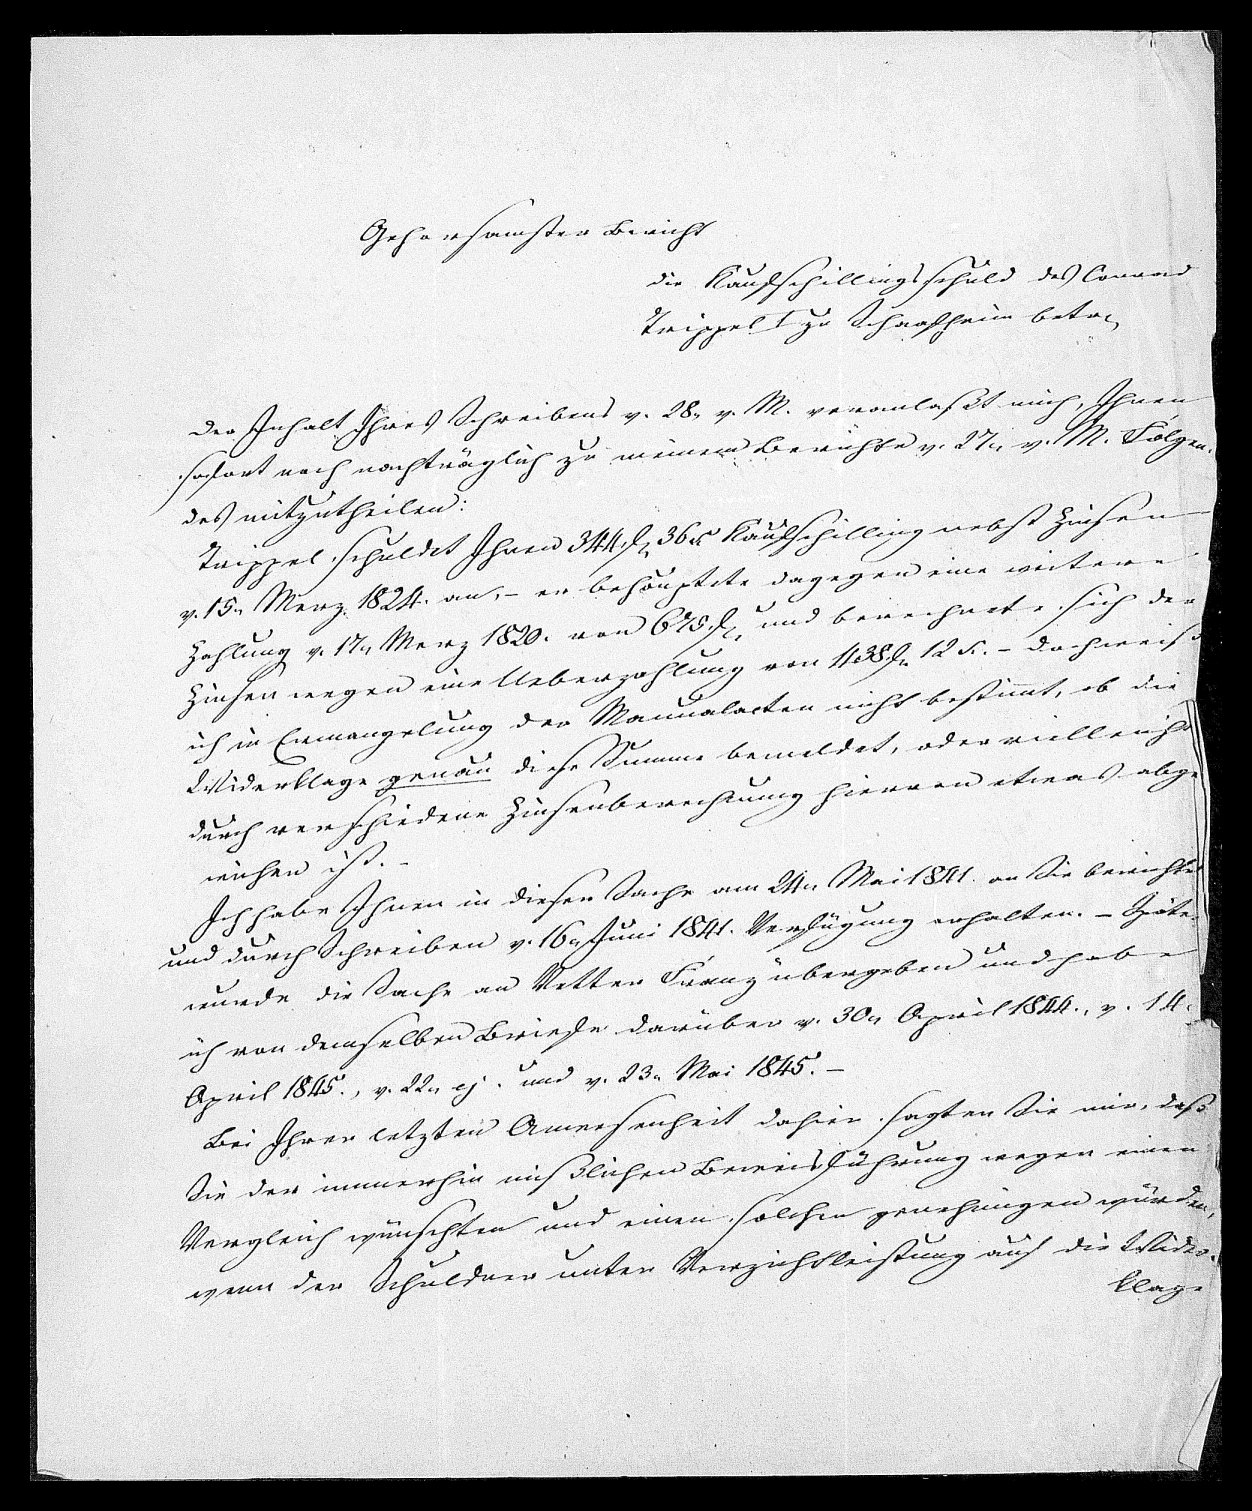 Gehorsamster Bericht
die Kaufschillingsschuld des Conrad
Trippel I zu Schaafheim betr.
Der Inhalt Ihres Schreibens v. 28n v. M. veranlaßt mich, Ihnen
sofort noch nachträglich zu meinem Berichte v. 27n v. M. Folgen-
des mitzutheilen:
Trippel schuldet Ihnen 344 f. 36 x Kaufschilling nebst Zinsen
v. 15n Merz 1824. an, – er behauptete dagegen eine weitere
Zahlung v. 17n Merz 1820. von 675 f. und berechnete sich der
Zinsen wegen eine Ueberzahlung von 1138 f. 12 x. – doch weis
ich in Ermangelung der Manualacten nicht bestimt, ob die
Widerklage genau diese Summe bemeldet, oder vielleicht
durch verschiedene Zinsenberechnung hiervon etwas abge
wichen ist. –
Ich habe Ihnen in dieser Sache am 24n Mai 1841. an Sie berichtet
und durch Schreiben v. 16n Juni 1841. Verfügung erhalten. – Später
wurde die Sache an Vetter Franz übergeben und habe
ich von demselben Briefe darüber v. 30n April 1844., v. 14.
April 1845., v. 22n ej. und v. 23n Mai 1845. –
Bei Ihrer letzten Anwesenheit dahier sagten Sie mir, daß
Sie der immerhin mißlichen Beweisführung wegen einen
Vergleich wünschten und einen solchen genehmigen würden,
wenn der Schuldner unter Verzichtleistung auf die Wider-
klage